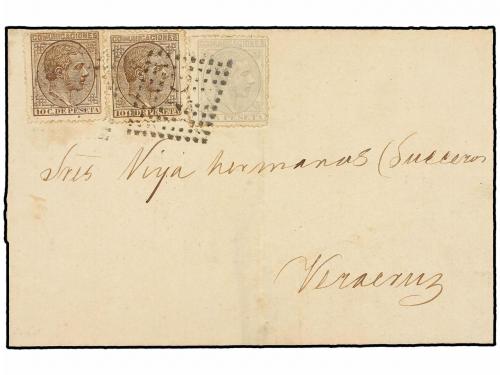 COMUNICACIONES COMUNICACIONES COMUNICACIONES
10 C. DE PESETA 10 C. DE PESETA DE PESETA
Sres Viya hermanos (Sucesores
Veracruz